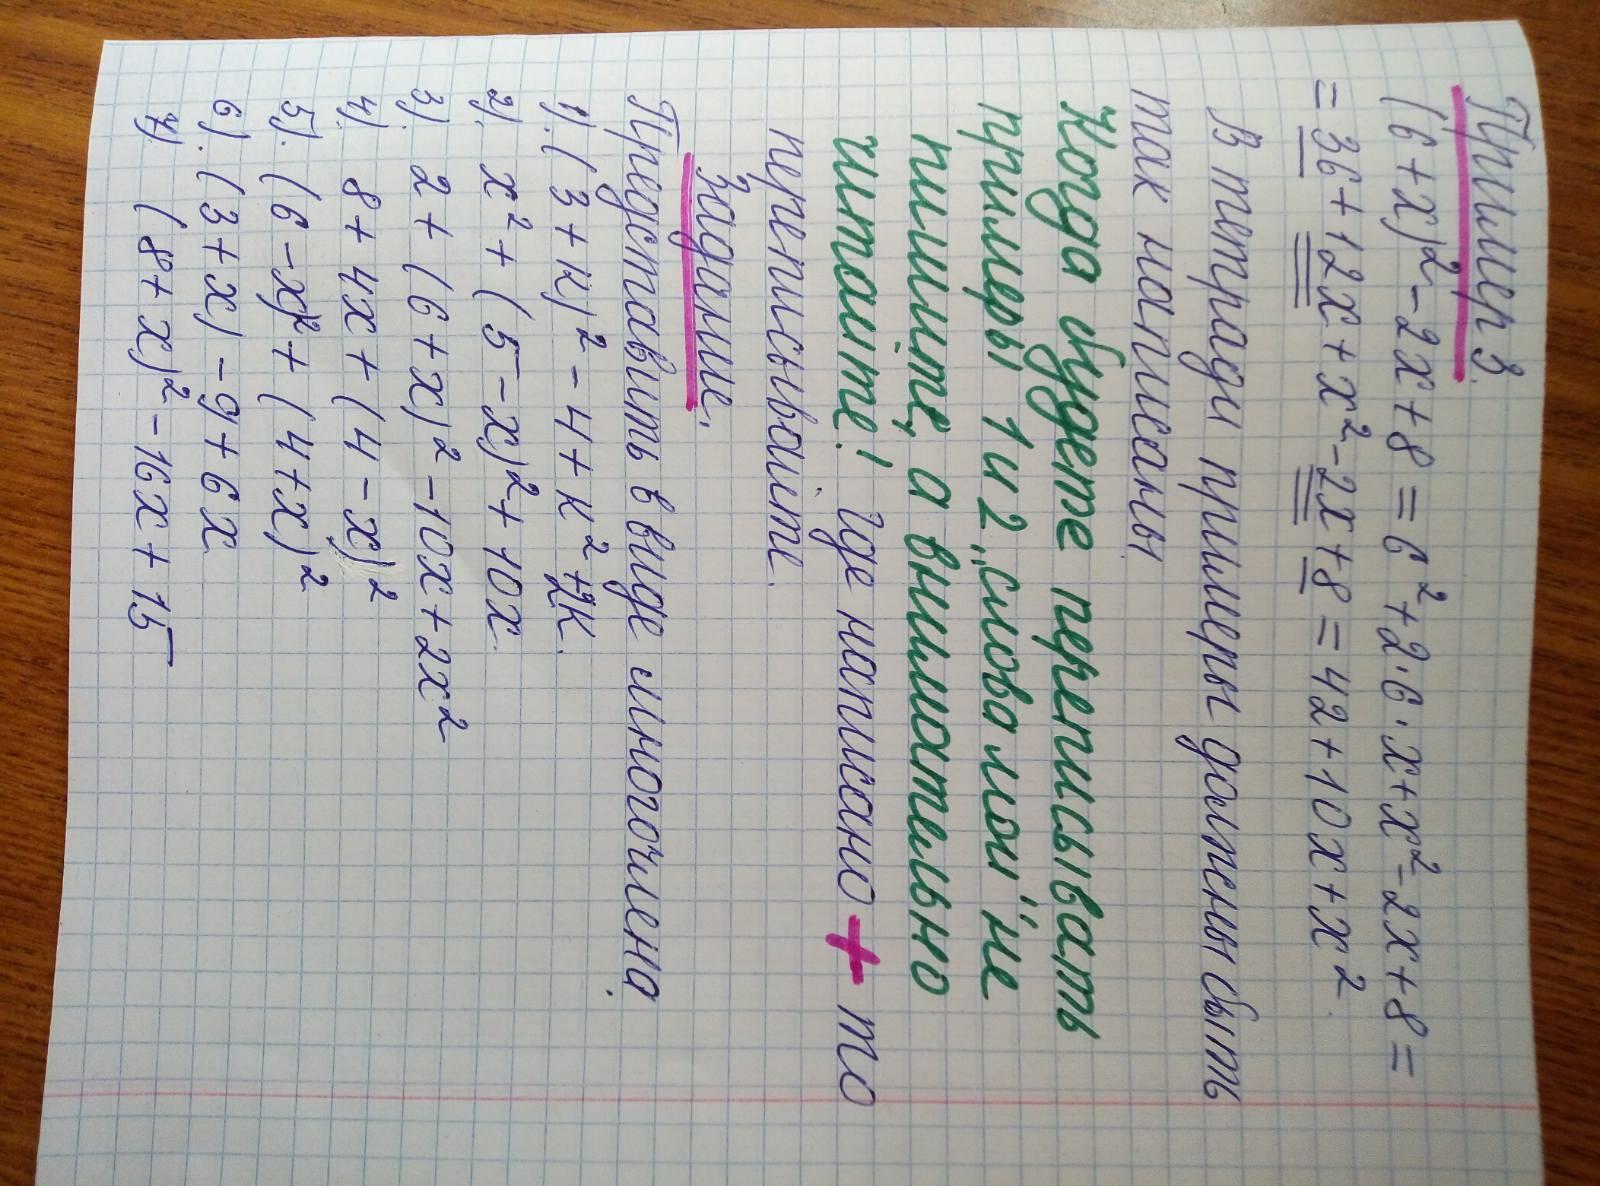 Пример 3.
(6+x)²-2x+8=6²+2·6·x+x²-2x+8=
=36+12x+x²-2x+8=42+10x+x².
В тетради примеры должны быть
так написаны.
Когда будете переписывать
примеры 1 и 2 „слова мои" не
пишите, а внимательно
читайте! Где написано + то
переписывайте.
Задание.
Представить в виде многочлена.
1). (3+к)²-4+к²+2к.
2). x²+(5-x)²+10x.
3). 2+(6+x)²-10x+2x²
4). 8+4x+(4-x)²
5). (6-x)²+(4+x)²
6). (3+x)-9+6x
7). (8+x)²-16x+15